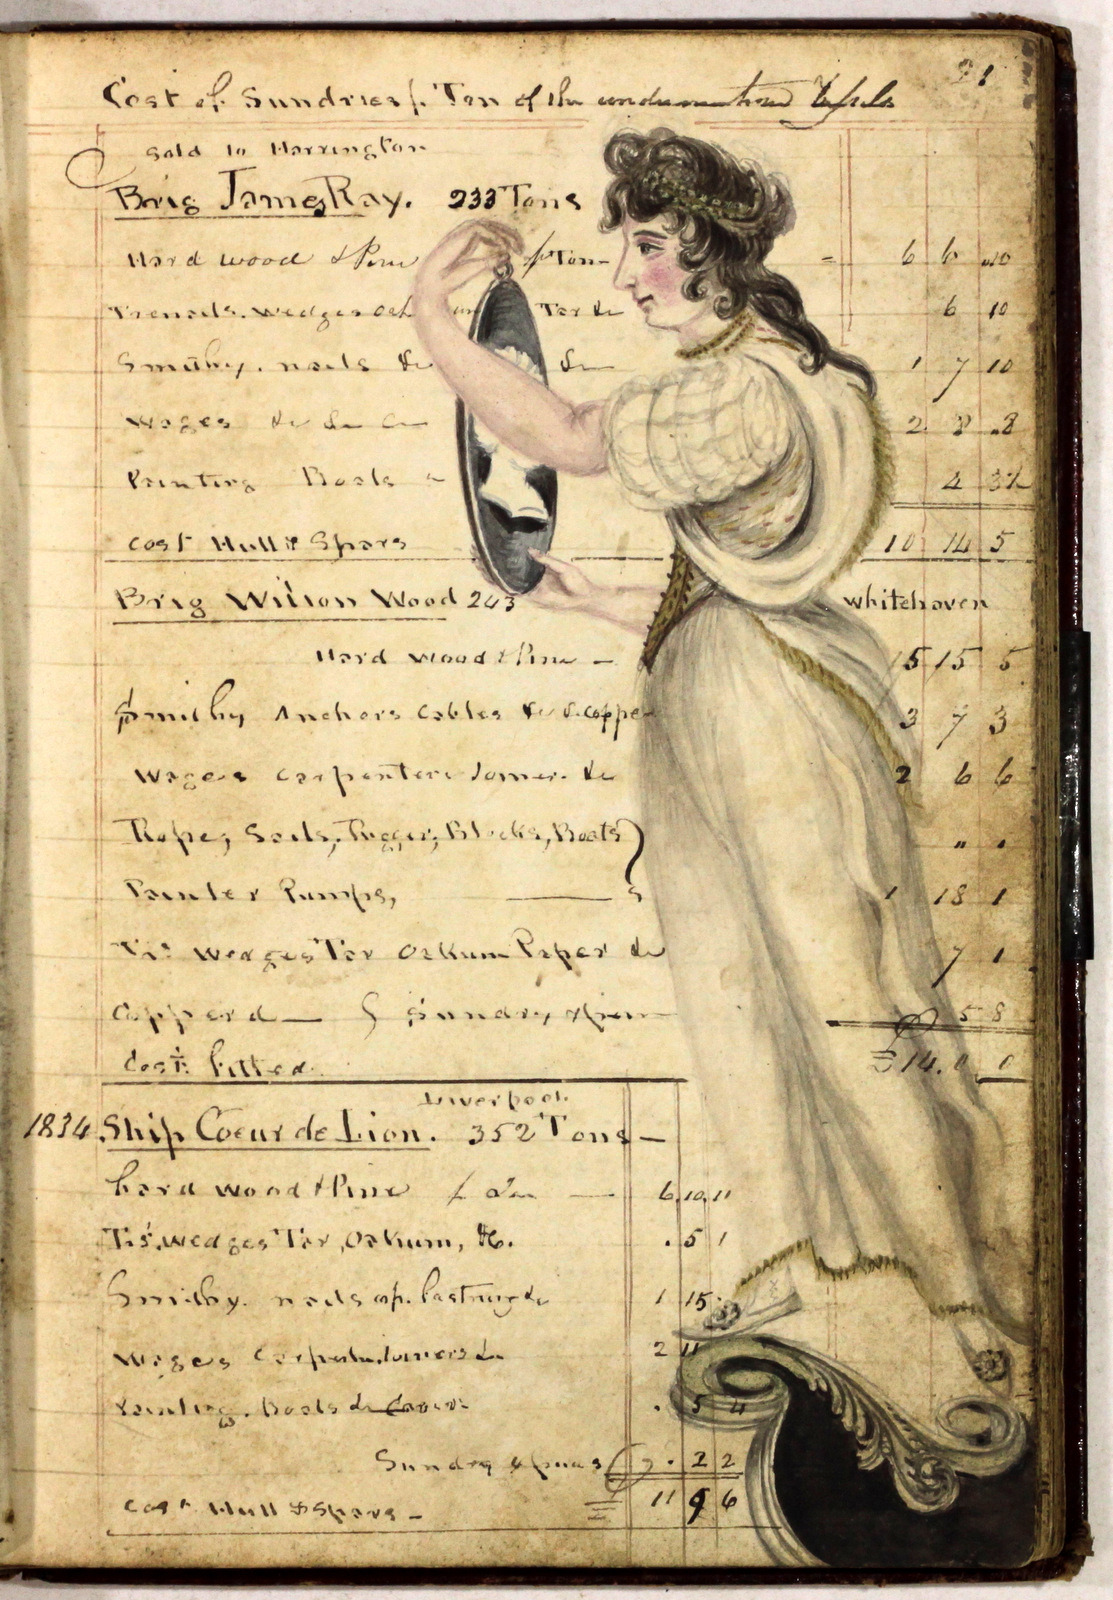 91
Cost of Sundries p. Ton of the undermentioned Vessels
Sold to Harrington
Brig James Ray. 233 Tons
Hard wood & Pine p Ton - = 6 6 .10
Trenails. Wedges Tar &c 6 10
Smithy. nails &c &c 1 7 10
Wages &c &c 2 8 .8
Painting Boats 4 3½
Cost Hull & Spars 10 14 5
Brig Wilson Wood 243 Whitehaven
Hard wood & Pine - 5 15 5
Smithy Anchors Cables &c & coppe 3 7 3
Wages Carpenters Joiner &c 2 6 6
Rope, Sails, Rigger, Blocks, Boats } " "
Painter Pumps, 1 18 1
Trs Wedges Tar Oakum Paper &c 7 1
Copperd — & Sundry 5 8
Cost fitted = 14. 0 0
Liverpool
1834 Ship Coeur de Lion. 352 Tons —
hard wood & Pine 6.10.11
Trs. Wedges Tar, Oakum, &c. . 5 1
Smithy. nails 1 15
Wages Carpenter Joiners &c 2 11
Painting. Boats &c . 5 4
Sundry . 2 2
Cost Hull & Spars - = 11 9 6